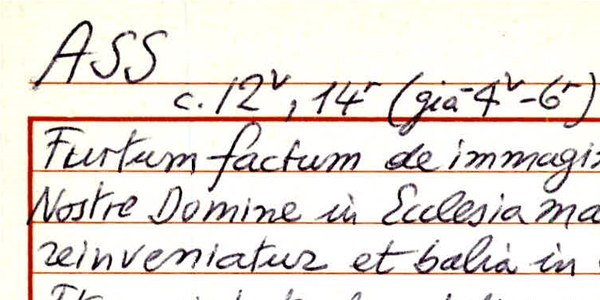 ASS
c. 12v, 14r (già 4v-6r)
Furtum factum de immagi
Nostre Domine in Ecclesia ma
reinveniatur et balia in